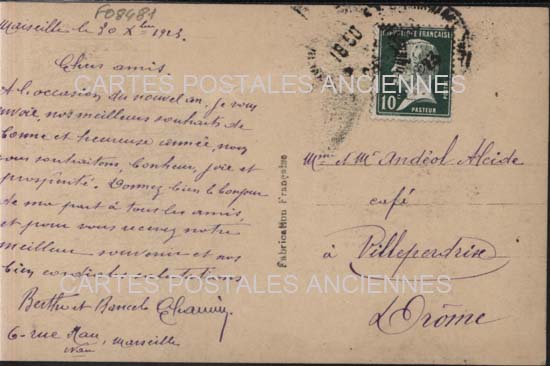 F08481
Marseille le 30 Xbre 1923.
Chers amis
A l'occasion du nouvel an, je vous
envoie, nos meilleurs souhaits de
bonne et heureuse année, nous
vous souhaitons, bonheur, joie et
prospérité. Donnez bien le bonjour
de ma part à tous les amis,
et pour vous recevez notre
meilleur souvenir et nos
bien cordiales salutations
Berthe et Marcelo Chauvin
6 - rue Nau, Marseille
Nau
Fabrication Française
REPUBLIQUE FRANÇAISE
10c
PASTEUR
18 30
Mme et Mr Andéol Alcide
café
à Villeperdrix
Drôme
CARTES POSTALES ANCIENNES
CARTES POSTALES ANCIENNES